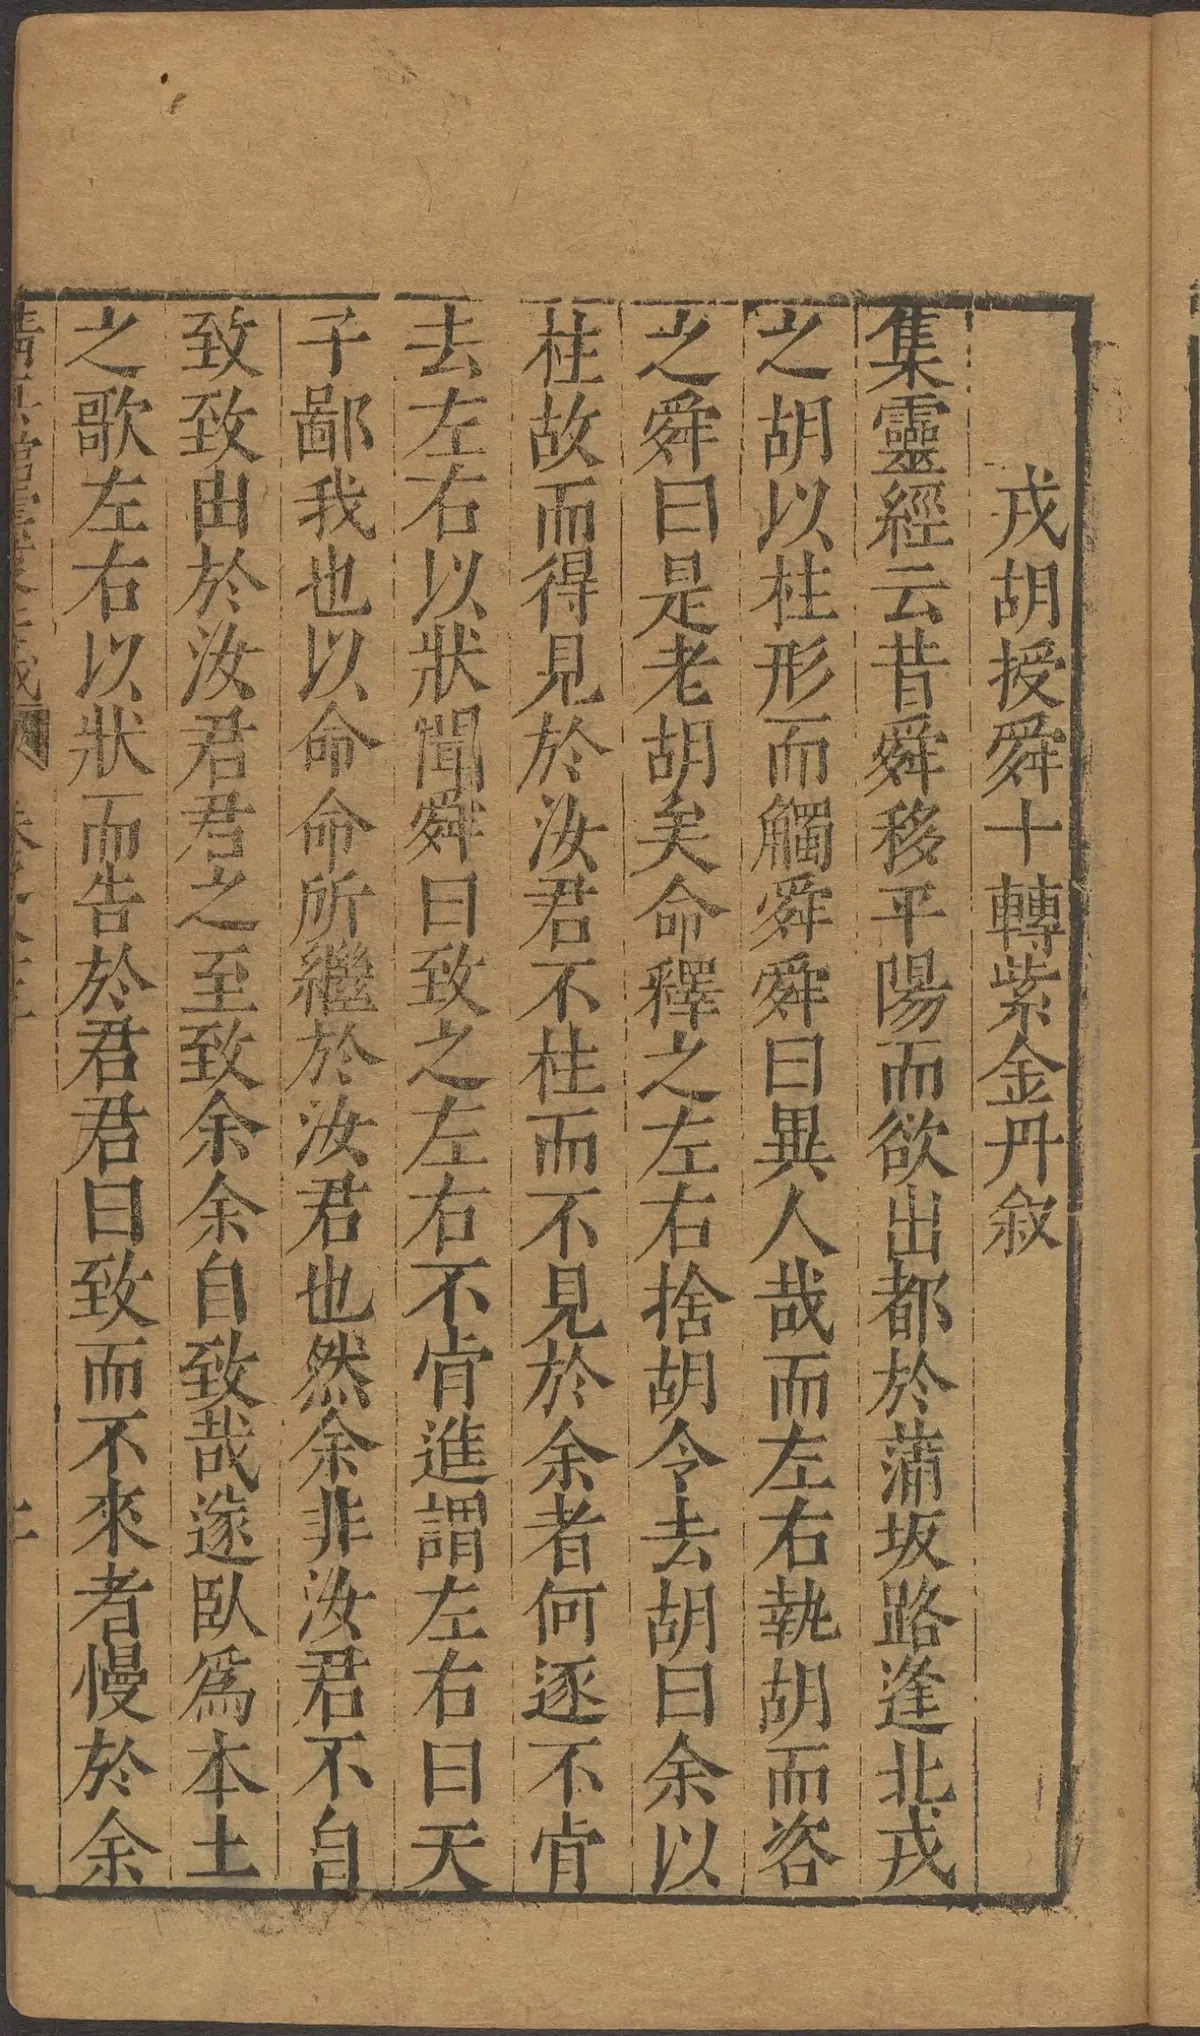 戎胡授舜十轉紫金丹敘
集靈經云昔舜移平陽而欲出都於蒲坂路逢北戎
之胡以柱形而觸舜舜曰異人哉而左右執胡而咨
之舜曰是老胡矣命釋之左右捨胡令去胡曰余以
柱故而得見於汝君不柱而不見於余者何逐不肯
去左右以狀聞舜曰致之左右不肯進謂左右曰天
子鄙我也以命命所繼於汝君也然余非汝君不自
致致出於汝君君之至致余余自致哉遂臥爲本土
之歌左右以狀而告於君君曰致而不來者慢於余